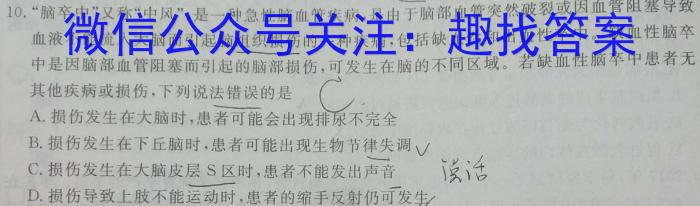 10.“脑卒中”又称“中风”,是一种急性脑血管疾病,是由于脑部血管突然破裂或因血管阻塞导致
血液 流 大脑而引起脑组织损伤的一种疾病,包括缺 和出 性脑卒
微信公众号关注：趣找答案
中是因脑部血管阻塞而引起的脑部损伤,可发生在脑的不同区域。若缺血性脑卒中患者无
其他疾病或损伤,下列说法错误的是
C.
A.损伤发生在大脑时,患者可能会出现排尿不完全
B.损伤发生在下丘脑时,患者可能出现生物节律失调 ✓
C.损伤发生在大脑皮层 S 区时,患者不能发出声音
说话
D.损伤导致上肢不能运动时,患者的缩手反射仍可发生